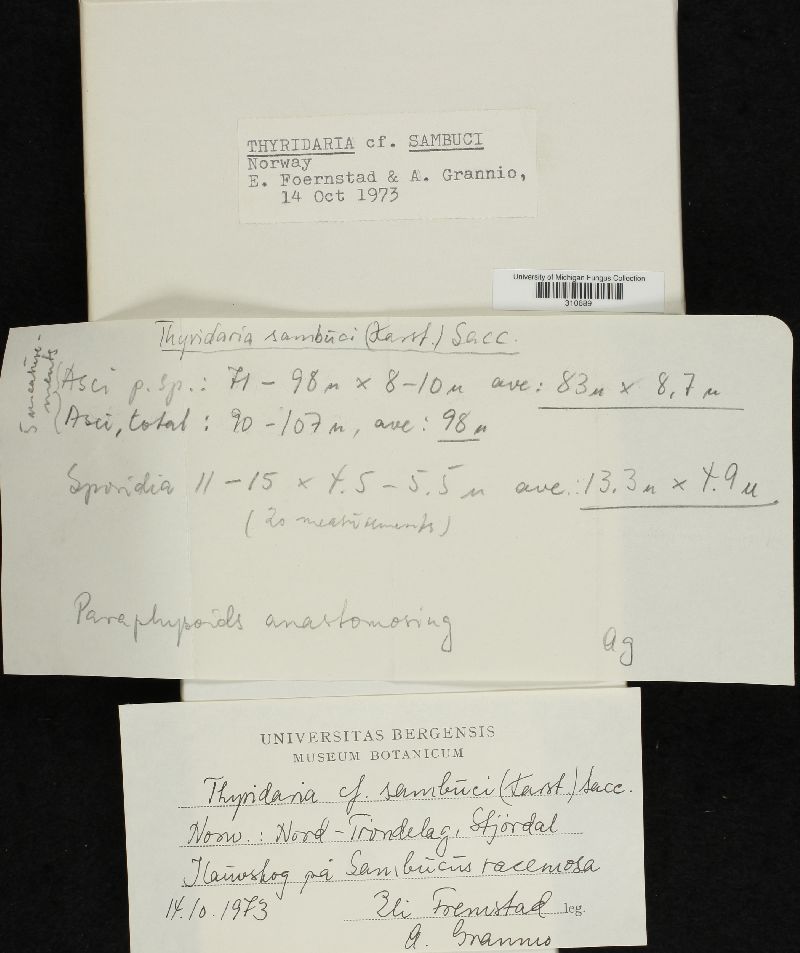 THYRIDARIA cf. SAMBUCI
Norway
E. Foernstad & A. Grannio,
14 Oct 1973
University of Michigan Fungus Collection
310689
Thyridaria sambuci (Karst.) Sacc.
5 measurements
Asci p.sp.: 71 - 98 µ × 8-10 µ ave: 83 µ × 8,7 µ
Asci, total: 90 - 107 µ, ave: 98 µ
Sporidia 11 - 15 × 4.5 - 5.5 µ ave.: 13.3 µ × 4.9 µ
(20 measurements)
Paraphysoids anastomosing
Ag
UNIVERSITAS BERGENSIS
MUSEUM BOTANICUM
Thyridaria cf. sambuci (Karst.) Sacc.
Norw.: Nord-Tröndelag, Stjördal
på Sambucus racemosa
14.10.1973 Eli Fremstad leg.
A. Grannio